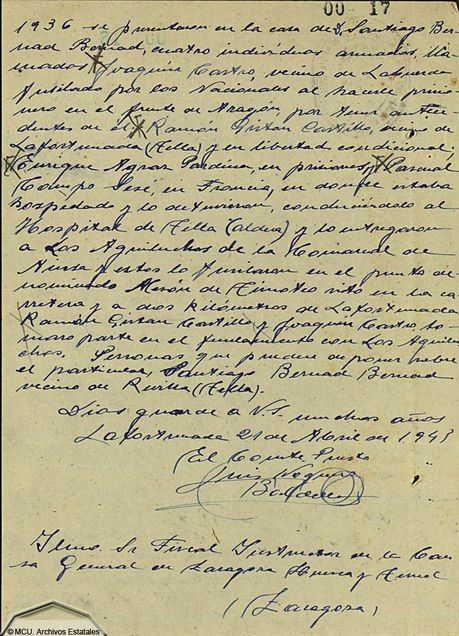 00 17
1936 se presentaron en la casa de D. Santiago Ber
nad Bernad, cuatro individuos armados, lla
mados Joaquin Castro, vecino de Labuerda
fusilado por los Nacionales al hacerle prisio
nero en el frente de Aragón, por tener antece
dentes de el, Ramón Castillo, vecino de
Lafortunada (Tella) y en libertad condicional;
Enrique Agraz Pardina, en prisiones y Pascual
Campo Sesé, en Francia, en donde estaba
hospedado y lo detuvieron, conduciéndolo al
Hospital de Tella (aldea) y lo entregaron
a Los Aguiluchos de la Comarcal de
Ainsa y estos lo fusilaron en el punto de
nominado Mesón de Timoteo sito en la ca
rretera y a dos kilómetros de Lafortunada
Ramón Castillo y Joaquin Castro, to
maro parte en el fusilamiento con Los Aguilu
chos. Personas que pueden deponer sobre
el particular, Santiago Bernad Bernad
vecino de Revilla (Tella).
Dios guarde a V.S. muchos años
Lafortunada 21 de Abril de 1943
El Cmte Puesto
Luis
Ilmo. Sr Fiscal Instructor de la Cau
sa General de Zaragoza Huesca y Teruel
(Zaragoza)
© MCU. Archivos Estatales